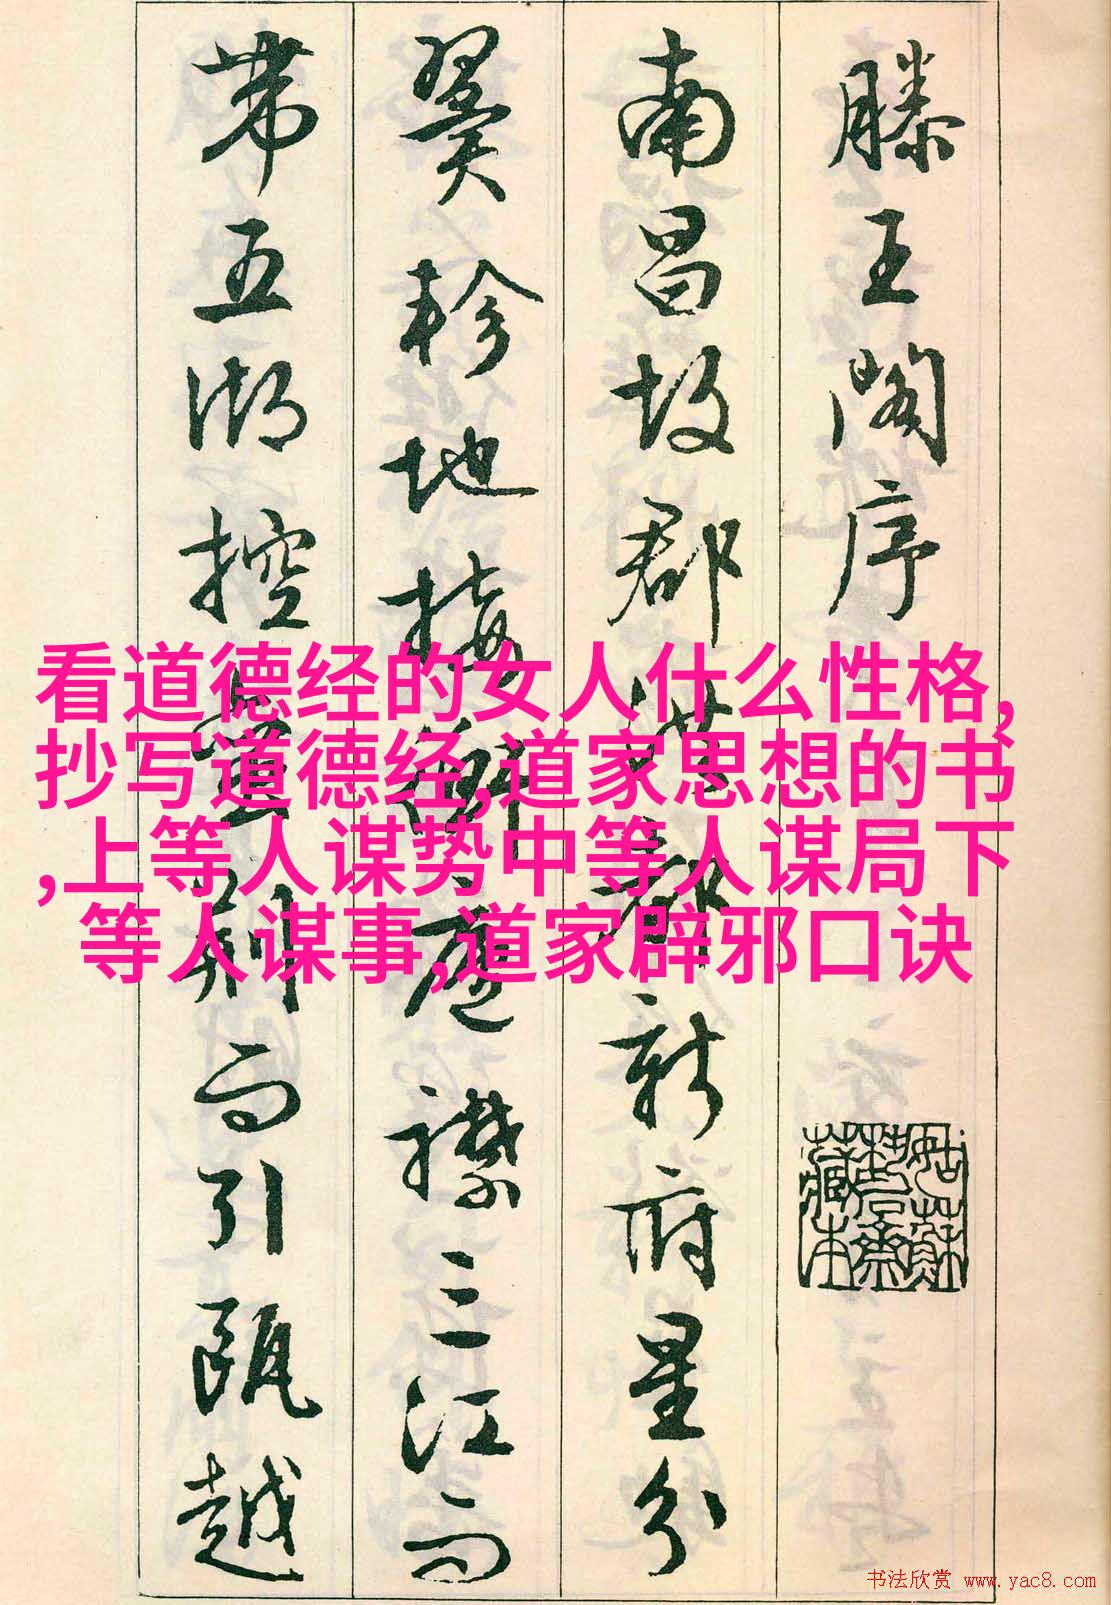 滕王閣序
南昌故郡洪都新府星分
翼軫地接衡廬襟三江而
帶五湖控蠻荆而引甌越
看道德经的女人什么性格,
抄写道德经,道家思想的书
,上等人谋势中等人谋局下
等人谋事,道家辟邪口诀
书法欣赏 www.yac8.com